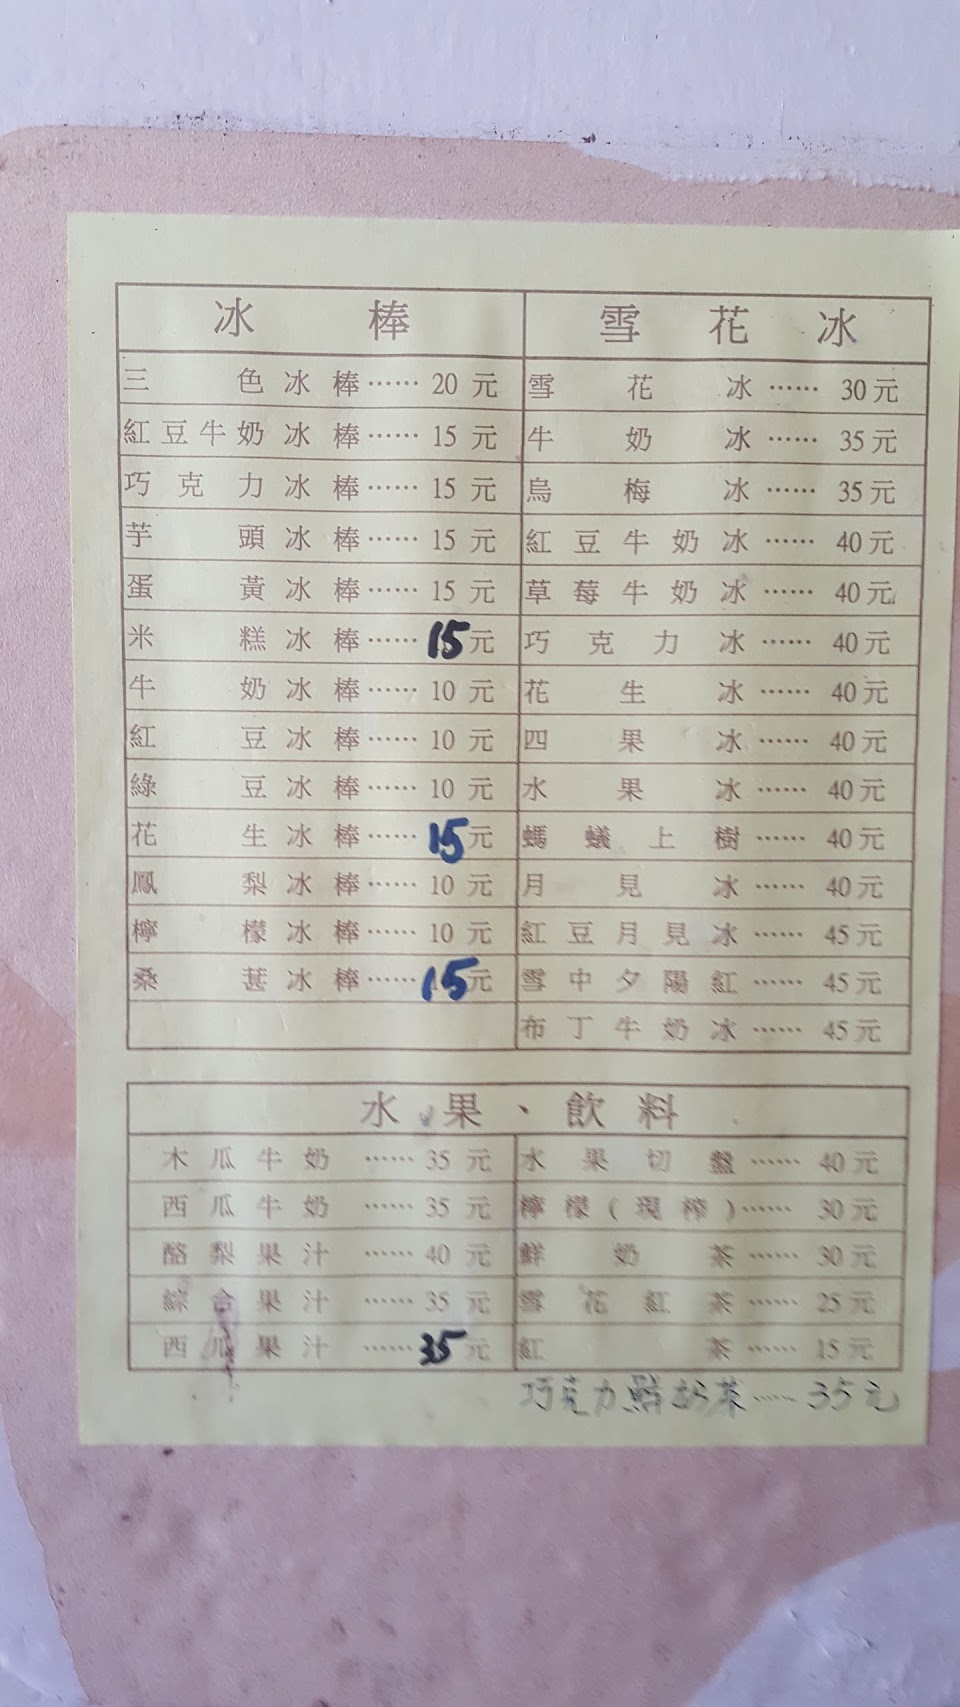 冰棒
三色冰棒……20元
紅豆牛奶冰棒……15元
巧克力冰棒……15元
芋頭冰棒……15元
蛋黃冰棒……15元
米糕冰棒……15元
牛奶冰棒……10元
紅豆冰棒……10元
綠豆冰棒……10元
花生冰棒……15元
鳳梨冰棒……10元
檸檬冰棒……10元
桑葚冰棒……15元
雪花冰
雪花冰……30元
牛奶冰……35元
烏梅冰……35元
紅豆牛奶冰……40元
草莓牛奶冰……40元
巧克力冰……40元
花生冰……40元
四果冰……40元
水果冰……40元
螞蟻上樹……40元
月見冰……40元
紅豆月見冰……45元
雪中夕陽紅……45元
布丁牛奶冰……45元
水果、飲料
木瓜牛奶……35元
西瓜牛奶……35元
酪梨果汁……40元
綜合果汁……35元
西瓜果汁……35元
水果切盤……40元
檸檬(現榨)……30元
鮮奶茶……30元
雪花紅茶……25元
紅茶……15元
巧克力鮮奶茶……35元